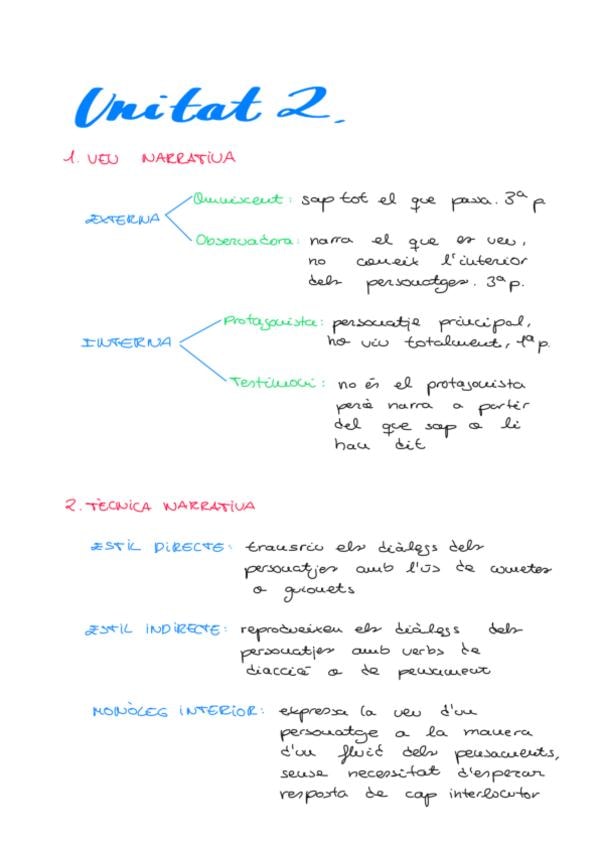 Unitat 2.
1. VEU NARRATIVA
EXTERNA
Omniscent: sap tot el que passa. 3ª p
Observadora: narra el que es veu,
no coneix l'interior
dels personatges. 3ª p.
INTERNA
Protagonista: personatje principal,
ho viu totalment, 1ª p.
Testimoni: no és el protagonista
però narra a partir
del que sap o li
han dit
2. TÈCNICA NARRATIVA
ESTIL DIRECTE: transriu els diàlegs dels
personatjes amb l'ús de cometes
o guionets
ESTIL INDIRECTE: reprodueixen els diàlegs dels
personatjes amb verbs de
diacció o de pensament
MONÒLEG INTERIOR: expressa la veu d'un
personatge a la manera
d'un fluid dels pensaments,
sense necessitat d'esperar
resposta de cap interlocutor